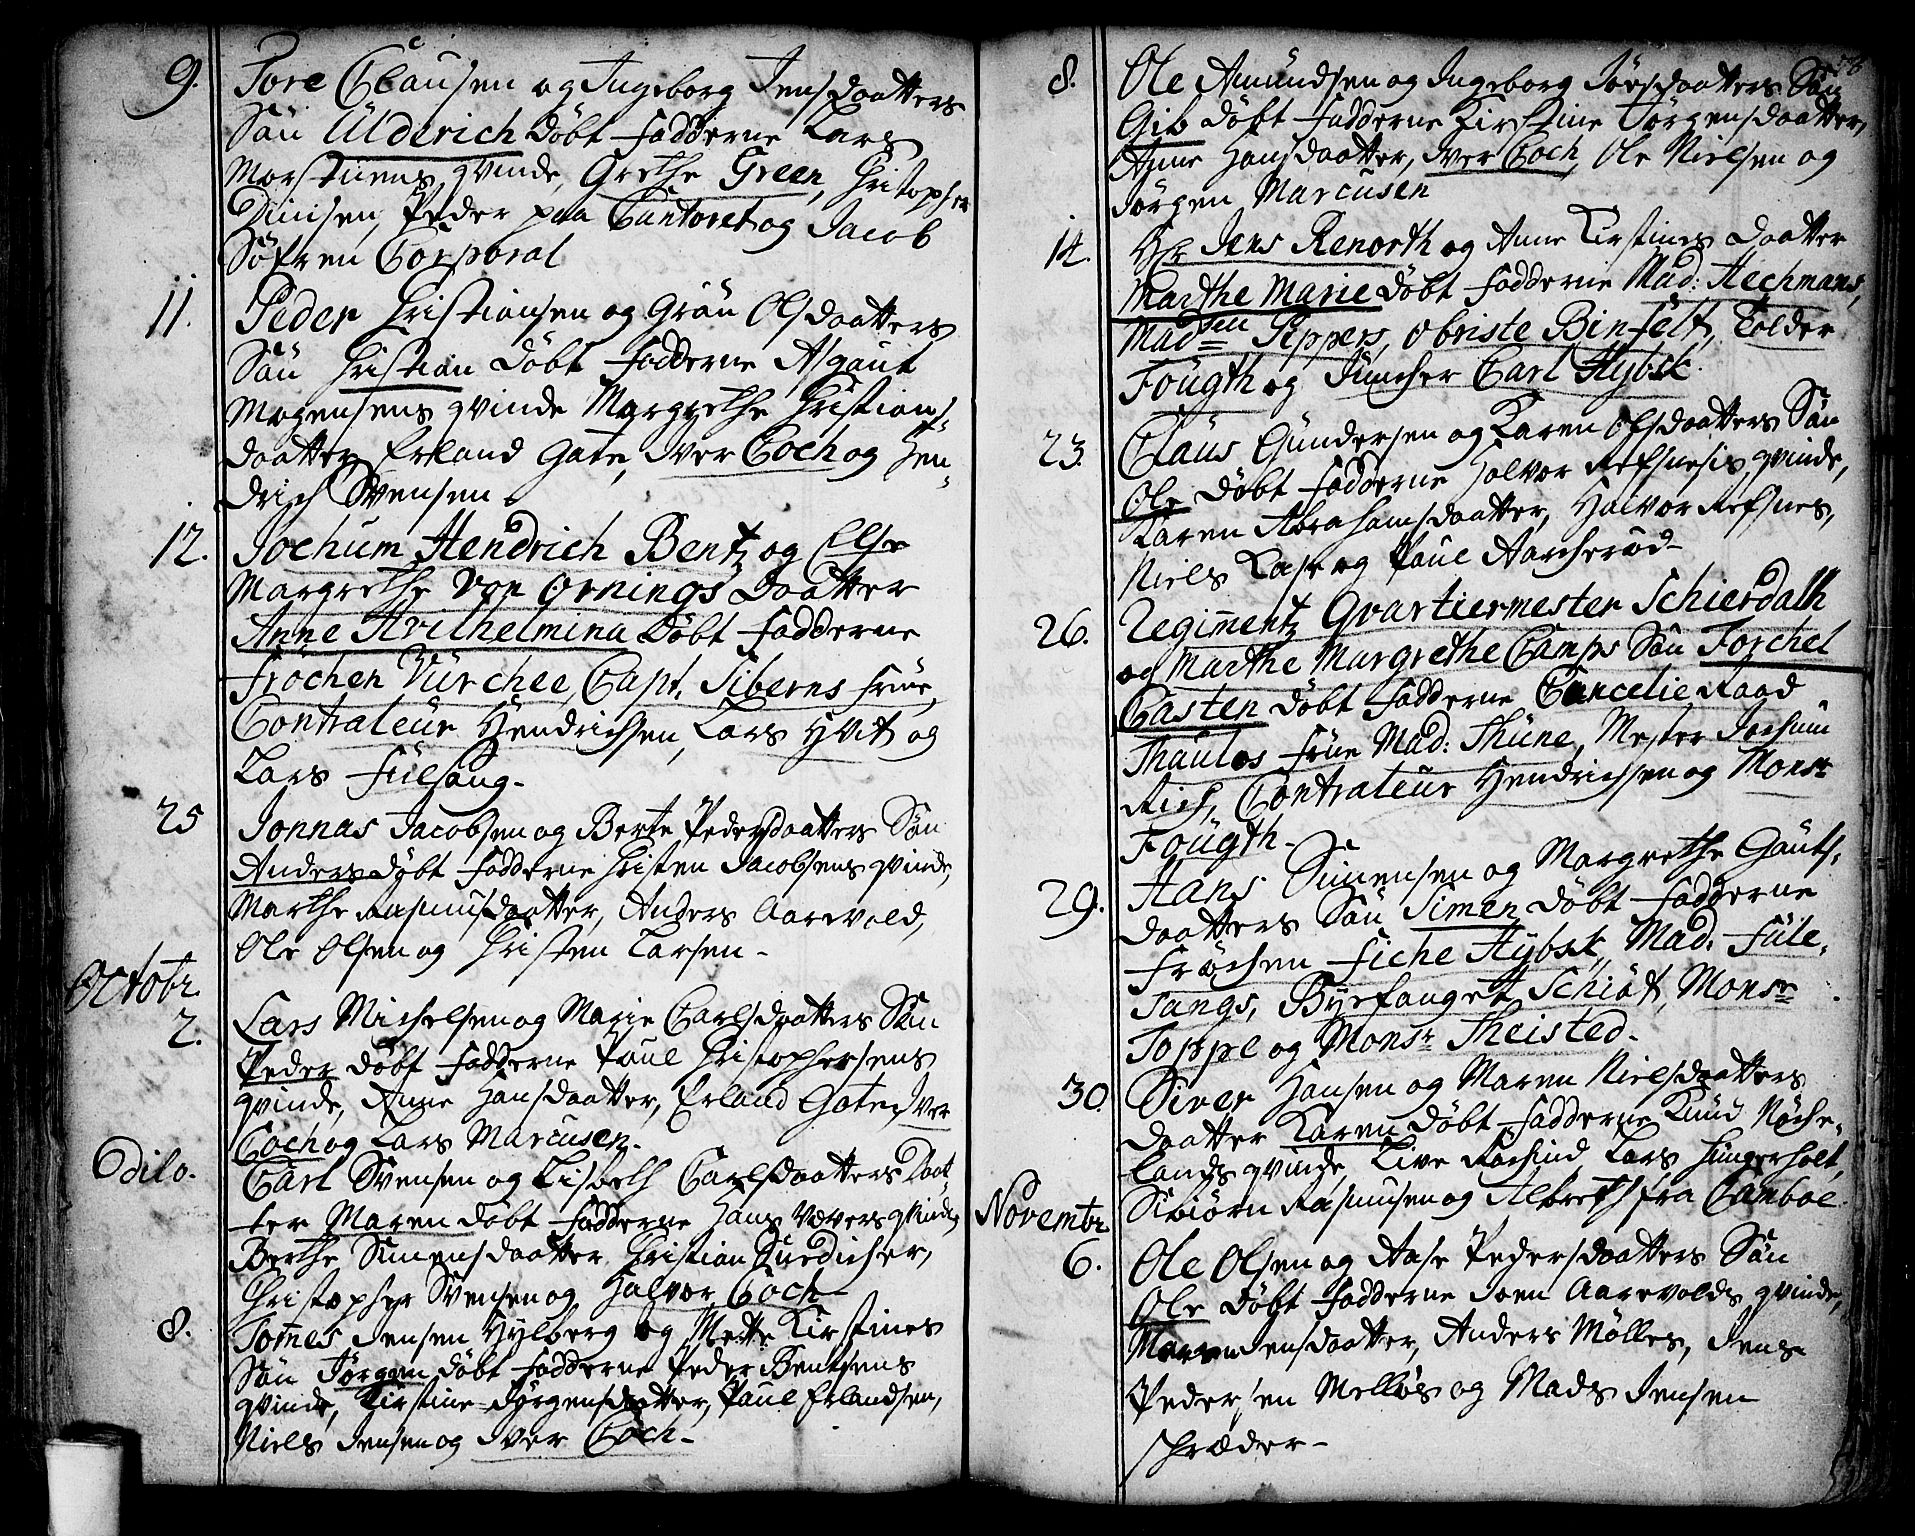 9. Tore Clausen og Ingeborg Jensdaatters
Sön Ulderich döbt Fadderne Lars
Morstuens qvinde, Grethe Green, Christopher
Dinisen, Peder paa Cantoret og Jacob
Söfren Corporal
11. Peder Christiansen og Grön Olsdaatters
Sön Christian döbt Fadderne Asgaut
Mogensens qvinde Margrethe Christians-
daatter Erland Gate, Iver Coch og Hen-
drich Svensen.
12. Jochum Hendrich Bentz og Else
Margrethe von Ornings Daatter
Anne Hvilhelmina döbt Fadderne
Fröchen Vürchee, Capt. Siberns Frue,
Contraleur Hendrichsen, Lars Hvit og
Lars Fülsang-
25 Jonnas Jacobsen og Berte Pedersdaatters Sön
Anders döbt Fadderne Christen Jacobsens qvinde,
Marthe Rasmusdaatter, Anders Aarevold,
Ole Olsen og Christen Larsen-
Octobr.
2. Lars Michelsen og Marie Carlsdaatters Sön
Peder döbt Fadderne Paul Christophersens
qvinde, Anne Hansdaatter, Erland Gate, Iver
Coch og Lars Marcusen-
dito. Carl Svensen og Lisbeth Carlsdaatters Daat
ter Maren döbt Fadderne Hans Vævers qvinde,
Berthe Simensdaatter Christian Suedicher,
Christopher Svensen og Halvor Coch-
8. Tomes Jensen Hylberg og Mette Kirstines
Sön Jørgen döbt Fadderne Peder Bentsens
qvinde, Kirstine Jørgensdaatter, Paul Erlandsen,
Niels Jensen og Iver Coch-
58
8. Ole Amundsen og Ingeborg Jorsdaatters Sön
Gib döbt Fadderne Kirstine Jörgensdaatter,
Anne Hansdaatter, Iver Coch, Ole Nielsen og
Jörgen Marcusen
14. Hr Jens Renorth og Anne Kirstines Daatter
Marthe Marie döbt Fadderne Mad: Hechmans,
Madsen Pippers, Obriste Binfelt, Tolder
Fougth og Juncher Carl Hybsk.
23. Claus Gundersen og Karen Olsdaatters Sön
Ole döbt Fadderne Halvor Refsnesis qvinde,
Karen Abrahamsdaatter, Halvor Refsnes,
Niels Lase og Paul Aarcherød-
26. Regimentz Qvartiermester Schierdalh
og Marthe Margrethe Camps Sön Torchel
Casten döbt Fadderne Cancelie Raad
Thaulos Frue Mad: Thüne, Mester Jochum
Rich, Contraleur Hendrichsen og Monsr
Fougth-
29. Hans Simensen og Margrethe Gauts-
daatters Sön Simen döbt Fadderne
Fröchen Fiche Hybsk, Mad. Füle-
sangs, Byefauget Schiöt, Monsr
Toppe og Monsr Theisted-
30. Siver Hansen og Maren Nielsdaatters
Daatter Karen döbt Fadderne Knud Nöche-
lands qvinde, Live Rorsund Lars Hungerholt,
Sibiörn Rasmusen og Albreth fra Camboe
Novembr
6. Ole Olsen og Aase Pedersdaatters Sön
Ole döbt Fadderne Joen Aarevolds qvinde,
Maren Jensdaatter, Anders Mölles, Jens
Pedersen Mellös og Mads Jensen
schræder-